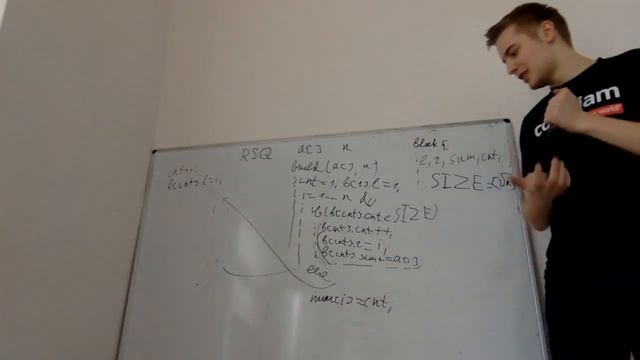 RSQ a[] n
build(a[], n)
cnt = 1, b[1].l = 1,
i = 1...n do
if (b[cnt].cnt < SIZE)
b[cnt].cnt++,
b[cnt].r = i,
b[cnt].sum += a[i],
else
num[i] = cnt,
cnt++,
b[cnt].l = i,
block {
l, r, sum, cnt,
SIZE =